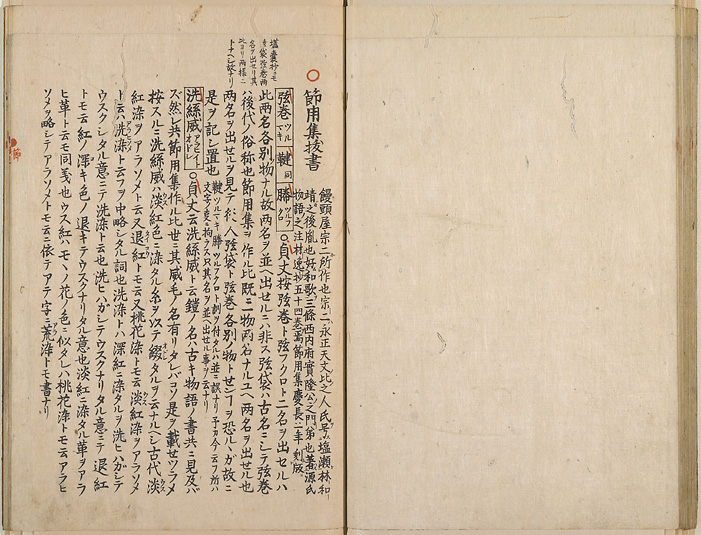 節用集抜書
饅頭屋宗二所作也宗二ハ永正天文比之人氏号ハ塩瀬林和
靖之後胤也好和歌三條西内府實隆公之門弟也著源氏
物語之注林逸抄五十四巻焉節用集慶長二年刻版
弦巻ツルマキ 鞬同 縢ツルフクロ ○貞丈按弦巻ト弦フクロト二名ヲ出セルハ
壒嚢抄ニモ
弦袋弦巻両
名ヲ出セリ其
比ヨリ両様ニ
トナヘシ故ナリ
此両名各別物ナル故両名ヲ並ヘ出セルニハ非ス弦袋ハ古名ニシテ弦巻
ハ後代ノ俗称也節用集ヲ作ル比既ニ一物両名ナルユヘ両名ヲ出セル也
両名ヲ出セルヲ見テ後人弦袋ト弦巻各別ノ物トセンヿヲ恐ルヽカ故ニ
是ヲ記シ置也
鞬ツルマキ縢ツルフクロト訓ヲ付タルハ並ニ誤ナリ予カ今云フ所ハ
文字ノ義ニ拘ラス只其名ヲ並ヘ出セル事ヲ云ナリ
洗絲威アラヒイトオトシ ○貞丈云洗絲威ト云鎧ノ名ハ古キ物語ノ書共ニ見及バ
ズ然レ共節用集作ル比世ニ其威毛ノ名有リタレバコソ是ヲ載セツラメ
按スルニ洗絲威ハ淡紅色ニ染タル糸ヲ以テ綴タルヲ云ナルヘシ古代淡
紅染ヲアラソメト云又退紅トモ云又桃花染トモ云淡紅染ヲアラソメ
ト云ハ洗染ト云フヲ中略シタル詞也洗染トハ深紅ニ染タルヲ洗ヒハガシテ
ウスクシタル意ニテ洗染ト云也洗ヒハガシテウスクナリタル意ニテ退紅
トモ云紅ノ深キ色ノ退キテウスクナリタル意也淡紅ニ染タル革ヲアラ
ヒ革ト云モ同義也ウス紅ハモヽノ花ノ色ニ似タレハ桃花染トモ云アラヒ
ソメヲ略シテアラソメトモ云ニ依テアラヲ字ニ荒染トモ書ナリ
節